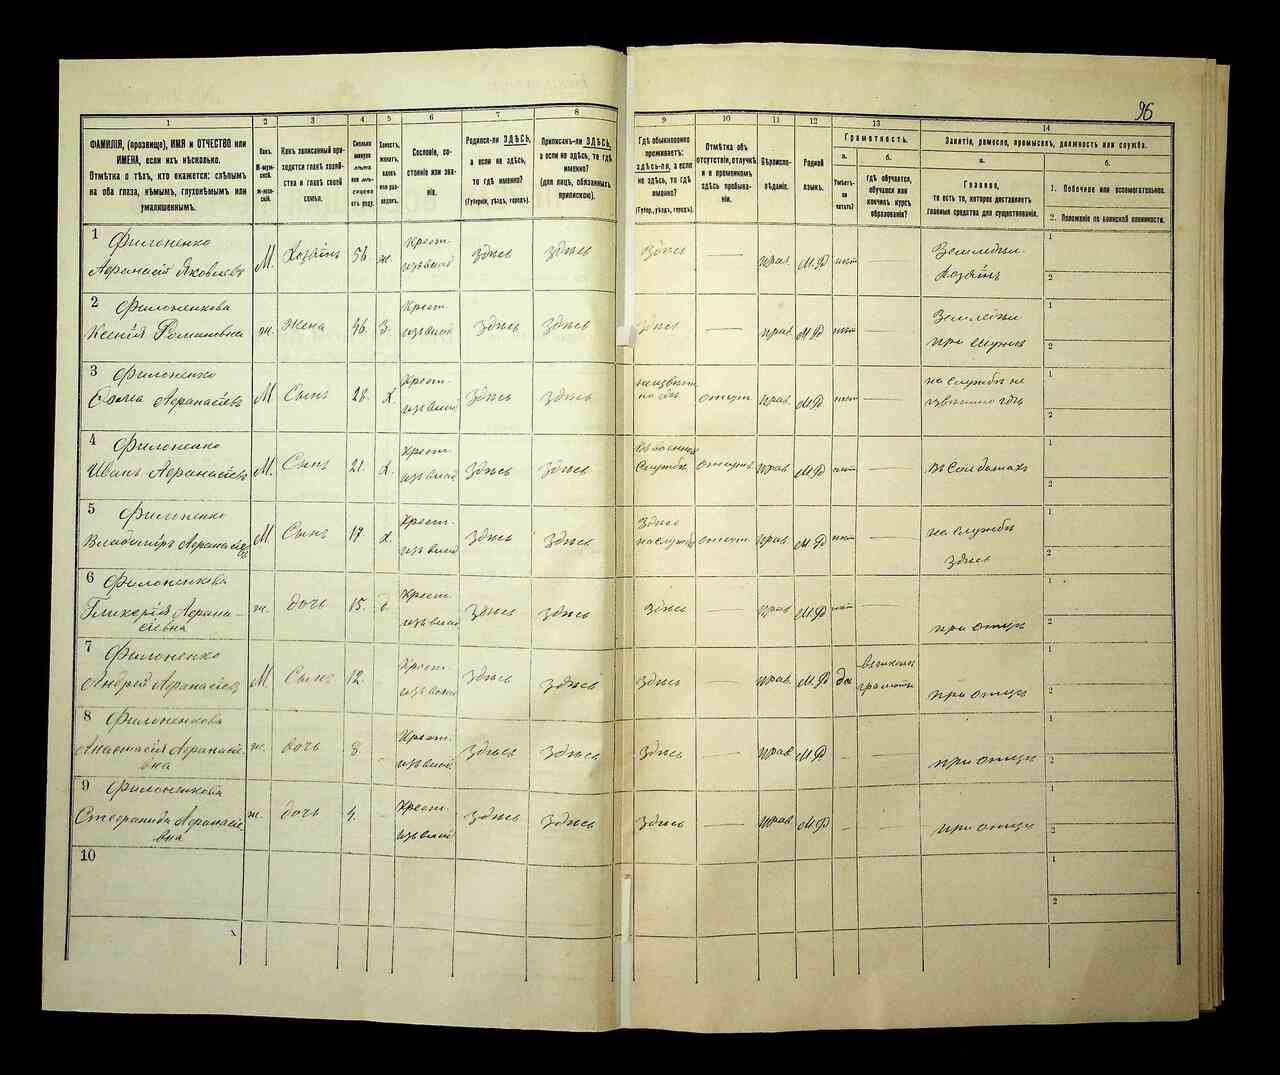 96
1
2
3
4
5
6
7
8
9
10
11
12
13
14
ФАМИЛІЯ, (прозвище), ИМЯ и ОТЧЕСТВО или
ИМЕНА, если ихъ нѣсколько.
Отмѣтка о тѣхъ, кто окажется: слѣпымъ
на оба глаза, нѣмымъ, глухонѣмымъ или
умалишеннымъ.
Полъ.
М-мужской.
ж-женскій.
Какъ записанный приходится главѣ хозяйства и главѣ своей
семьи.
Сколько минуло лѣтъ или мѣсяцевъ отъ роду.
Холостъ, женатъ, вдовъ или разведенъ.
Сословіе, состояніе или званіе.
Родился-ли ЗДѢСЬ,
а если не здѣсь,
то гдѣ именно?
(Губернія, уѣздъ, городъ).
Приписанъ-ли ЗДѢСЬ,
а если не здѣсь, то гдѣ
именно?
(для лицъ, обязанныхъ
припискою).
Гдѣ обыкновенно
проживаетъ:
здѣсь-ли, а если
не здѣсь, то гдѣ
именно?
(Губер., уѣздъ, городъ).
Отмѣтка объ
отсутствіи, отлучкѣ
и о временномъ
здѣсь пребываніи.
Вѣроисповѣданіе.
Родной
языкъ.
Грамотность.
а.
Умѣетъ-ли
читать?
б.
гдѣ обучается,
обучался или
кончилъ курсъ
образованія?
Занятіе, ремесло, промыселъ, должность или служба.
а.
Главное,
то есть то, которое доставляетъ
главныя средства для существованія.
б.
1. Побочное или вспомогательное.
2. Положеніе по воинской повинности.
1 Филоненко
Афанасій Яковлевъ М. Хозяинъ 56 ж. Крест. изъ влад. здѣсь здѣсь здѣсь — прав. М.Р нѣт — Земледѣл. хозяинъ 1 2
2 Филоненкова
Ксенія Романовна ж. Жена 46. З. Крест. изъ влад здѣсь здѣсь здѣсь — прав М.Р нѣт — при мужѣ 1 2
3 Филоненко
Фома Афанасіевъ М. Сынъ 28. Х. Крест. изъ влад здѣсь здѣсь неизвѣстно гдѣ отсут. прав. М.Р нѣт — на службѣ неизвѣстно гдѣ 1 2
4 Филоненко
Иванъ Афанасіевъ М. Сынъ 21. Х. Крест. изъ влад здѣсь здѣсь въ военной службѣ отсутв. прав М.Р нѣт — въ Солдатахъ 1 2
5 Филоненко
Владиміръ Афанасіевъ М Сынъ 17. Х. Крест. изъ влад здѣсь здѣсь здѣсь на службѣ отсут. прав. М.Р нѣт — на службѣ здѣсь 1 2
6 Филоненкова
Гликерія Афанасіевна ж. дочь 15. Крест. изъ влад здѣсь здѣсь здѣсь — прав М.Р нѣт — при отцѣ 1 2
7 Филоненко
Андрей Афанасіевъ М. Сынъ 12. Крест. изъ влад здѣсь здѣсь здѣсь — прав. М.Р да въ школѣ грамоты при отцѣ 1 2
8 Филоненкова
Анастасія Афанасіевна ж. дочь 8. - Крест. изъ влад. здѣсь здѣсь здѣсь — прав. М.Р - — при отцѣ 1 2
9 Филоненкова
Стефанида Афанасіевна ж. дочь 4. - Крест. изъ влад здѣсь здѣсь здѣсь — прав. М.Р - — при отцѣ 1 2
10 1 2